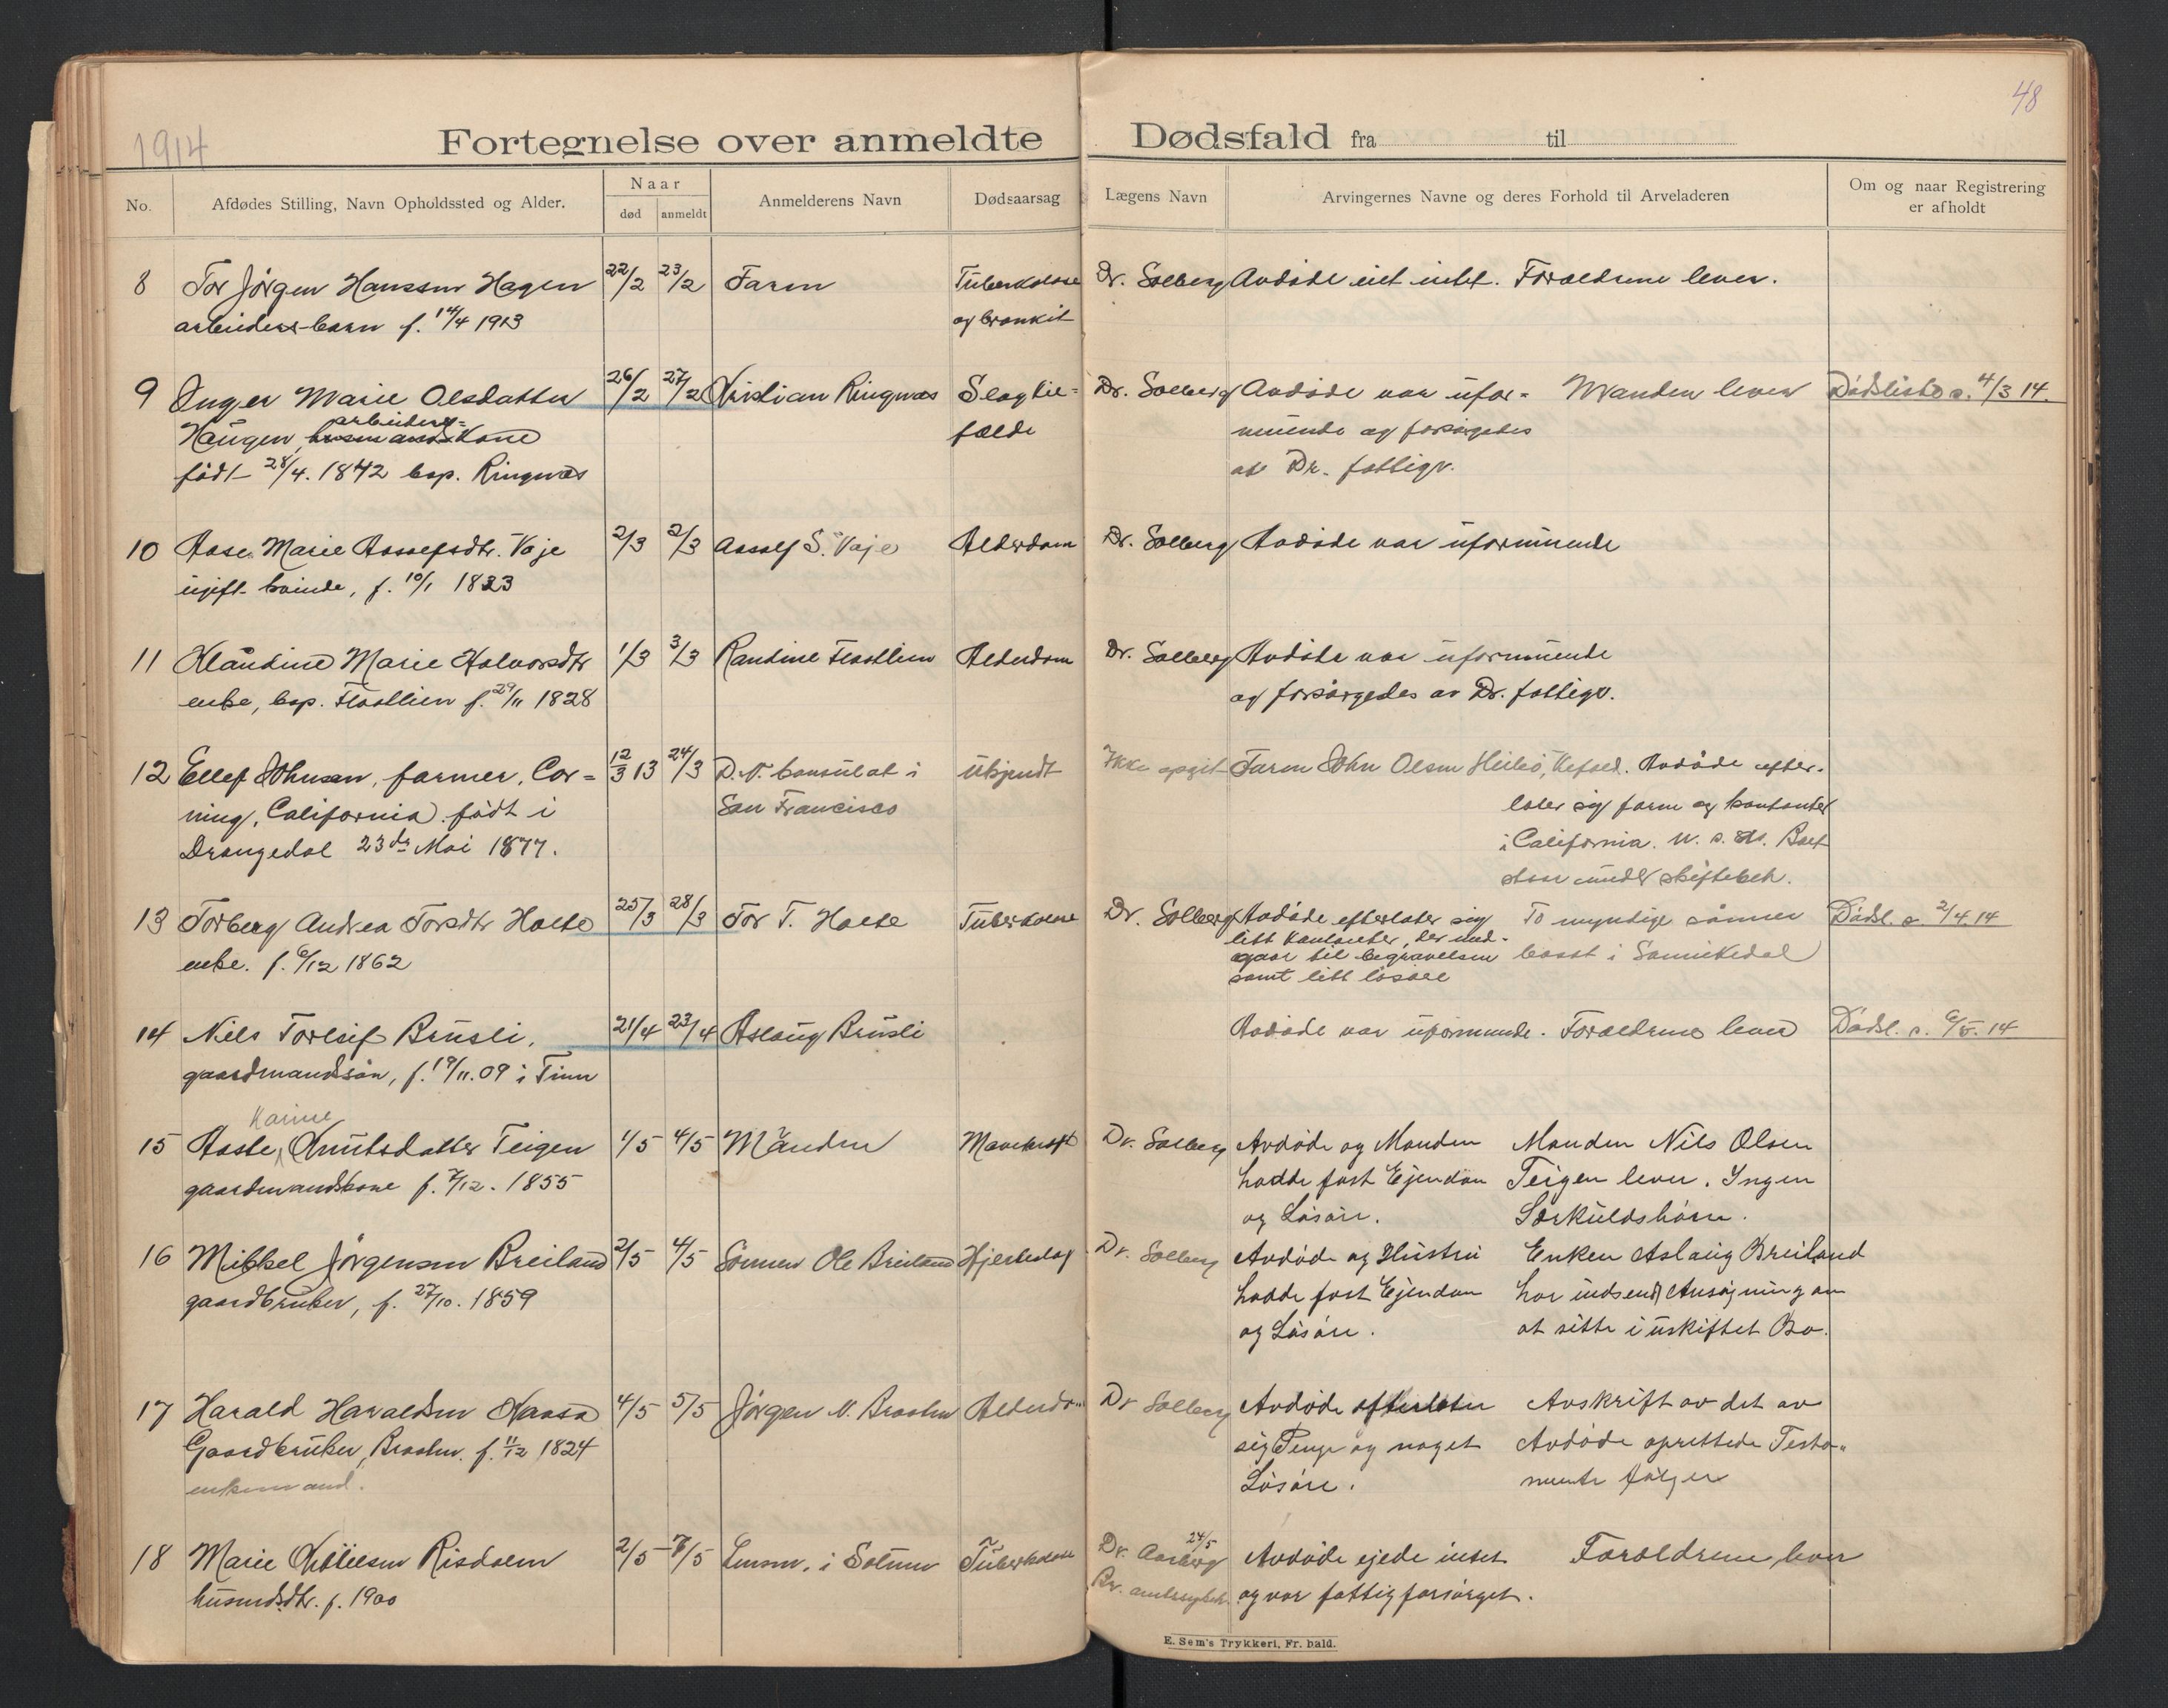 1914
48
Fortegnelse over anmeldte Dødsfald fra til
No.
Afdødes Stilling, Navn Opholdssted og Alder.
Naar
død
anmeldt
Anmelderens Navn
Dødsaarsag
Lægens Navn
Arvingernes Navne og deres Forhold til Arveladeren
Om og naar Registrering
er afholdt
8 Tor Jørgen Hanssøn Hagen 22/2 23/2 Faren Tuberkulose Dr. Solberg Avdøde eiet intet. Forældrene lever.
arbeiders barn f. 14/4 1913 og bronkit
9 Inger Marie Olsdatter 26/2 27/2 Kristian Ringnæs Slagtil- Dr. Solberg Avdøde var ufor- Manden lever Dødsliste s. 4/3 14.
arbeiders-
Haugen, husmandskone fælde muende og forsørgedes
født 28/4. 1842 bop. Ringnæs av Dr. fattigv.
10 Aase Marie Aasolfsdtr. Vaje 2/3 2/3 Aasolf S. Vaje Alderdom Dr. Solberg Avdøde var uformuende
ugift kvinde, f. 10/1 1833
11 Klaudine Marie Halvorsdtr 1/3 3/3 Randine Flaatlien Alderdom Dr. Solberg Avdøde var uformuende
enke, bop. Flaatlien f. 29/11 1828 og forsørgedes av Dr. fattigv.
12 Ellef Johnsen, farmer, Cor- 12/3 13 24/3 D. N. Consulat i Ukjendt Ikke opgit Faren John Olsen Heibø, Kefaed. Avdøde efter-
ning, California. født i San Francisco later sig farm og kontanter
Drangedal 23de Mai 1877. i California. U. S. A. Boet
staar under skiftebeh.
13 Torberg Andrea Torsdtr Holte 25/3 28/3 Tor T. Holte Tuberkulose Dr. Solberg Avdøde efterlater sig To myndige sønner Dødsl. s. 2/4.14
litt kontanter, der med-
enke. f. 6/12 1862 gaar til begravelsen bosat i Sannikedal
samt litt løsøre
14 Niels Torleif Brusli, 21/4 23/4 Aslaug Brusli Avdøde var uformuende. Forældrene lever Dødsl. s. 6/5. 14
gaardmandssøn, f. 19/11. 09 i Tinn
Karine
15 Aaste Knutsdatter Teigen 1/5 4/5 Manden Mavekræft Dr. Solberg Avdøde og Manden Manden Nils Olsen
gaardmandskone f. 7/12. 1855 hadde fast Ejendom Teigen lever. Ingen
og Løsøre. Særkuldsbørn.
16 Mikkel Jørgensen Breiland 2/5 4/5 Sønnen Ole Breiland Hjerteslag Dr. Solberg Avdøde og Hustru Enken Aslaug Breiland
gaardbruker, f. 27/10. 1859 hadde fast Ejendom har indsendt Ansøgning om
og Løsøre. at sitte i uskiftet Bo.
17 Harald Haraldsen Naasa 4/5 5/5 Jørgen N. Braaten Alderdom Dr Solberg Avdøde efterlater Avskrift av det av
Gaardbruker, Braaten. f. 11/12 1824 sig Penge og noget Avdøde oprettede Testa-
enkemand. Løsøre. mente følger
24/5
18 Marie Kittilsen Risdalen 2/5 7/5 Lensm. i Solum Tuberkulose Dr. Aasberg Avdøde ejede intet Forældrene lever
husmdsdtr. f. 1900 og var fattigforsørget.
E. Sem's Trykkeri, Fr. hald.